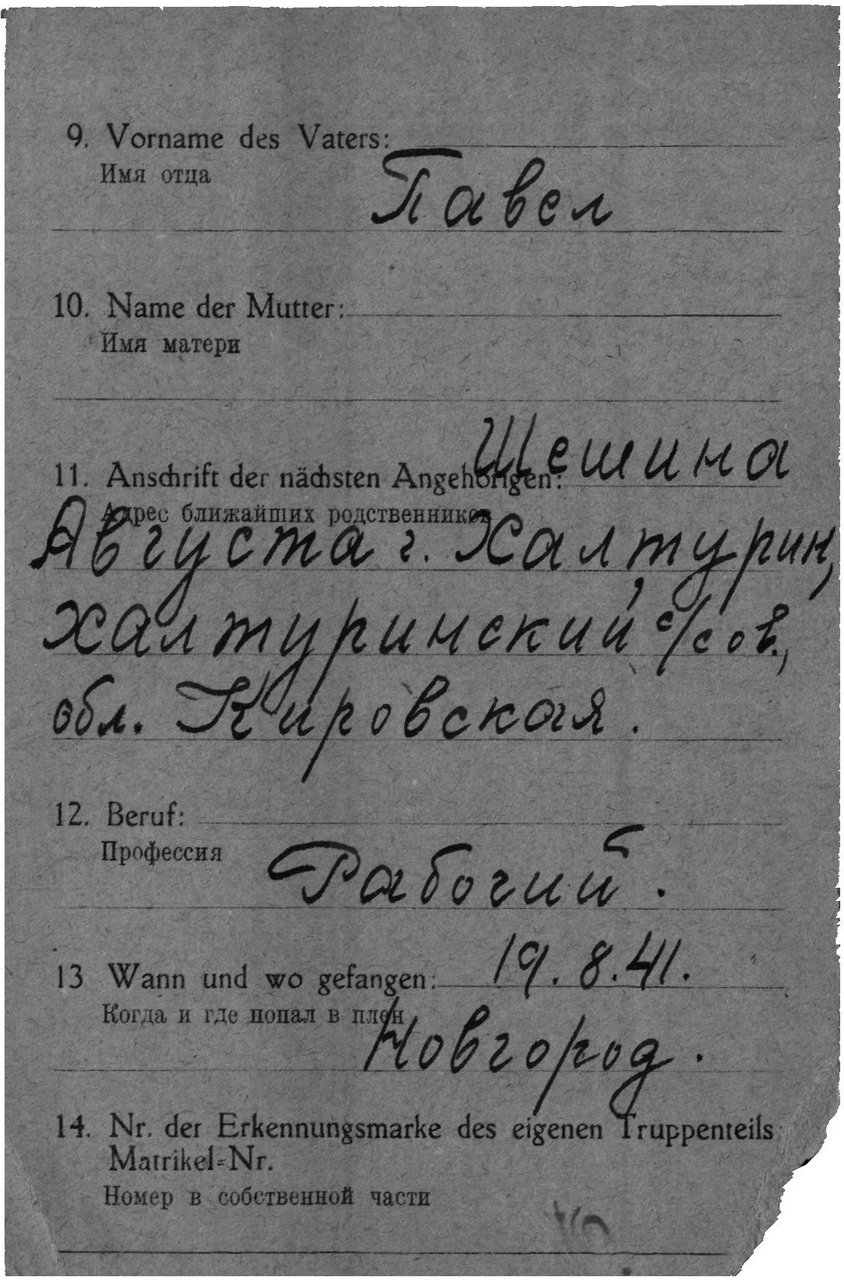 9. Vorname des Vaters:
Имя отца
Павел
10. Name der Mutter:
Имя матери
Шешина
11. Anschrift der nächsten Angehörigen:
Адрес ближайших родственников
Августа г. Халтурин,
Халтуринский с/сов.,
обл. Кировская.
12. Beruf:
Профессия
Рабочий.
13 Wann und wo gefangen: 19.8.41.
Когда и где попал в плен
Новгород.
14. Nr. der Erkennungsmarke des eigenen Truppenteils
Matrikel-Nr.
Номер в собственной части